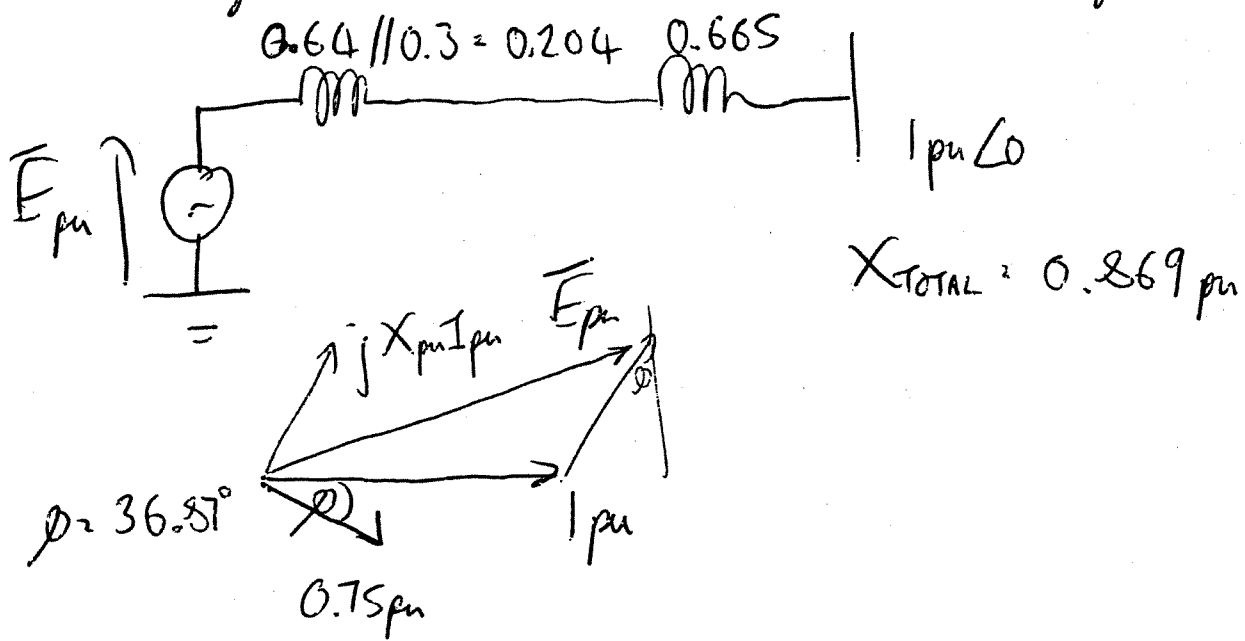 0.64 // 0.3 = 0.204 0.665
Ēpu
1pu∠0
X_TOTAL = 0.869 pu
jXpuIpu Ēpu
ø
ø = 36.87° ø 1pu
0.75pu